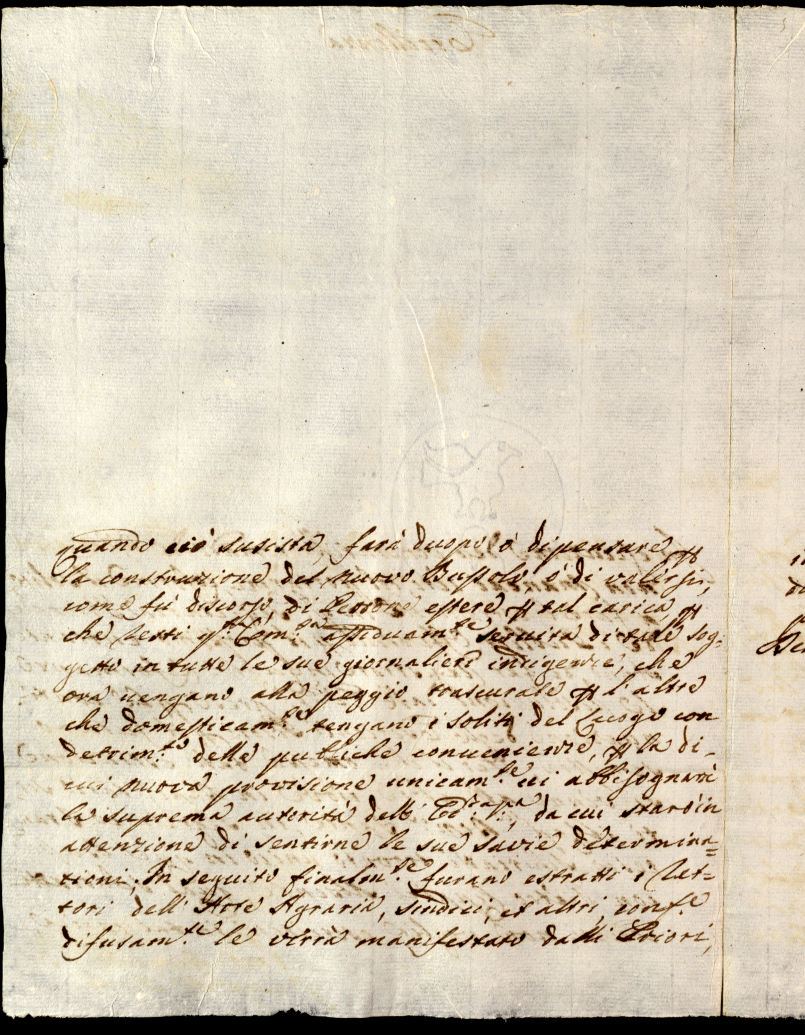 quando ciò susista, farà duopo ò dipensare
la construzione del nuovo Bussolo, ò di valersi,
come fù discorso, di Persone estere p tal carica, p
che resti q.ta Com.tà assiduam.te servita di tale sog-
getto in tutte le sue giornalieri indigenze, che
ora vengano alla peggio trascurate p l'altre
che domesticam.te tengano i soliti del Luogo con
detrim.to delle publiche convenienze, p la di
cui nuova provisione unicam.te ci abbisognarà
la suprema autorità dell' da cui starò in
attenzione di sentirne le sue savie determina=
zioni; In seguito finalm.te furano estratti i Ret-
tori dell' Arte Agraria, sindici, et altri, conf.e
difusam.te le verrà manifestato dalli Priori,